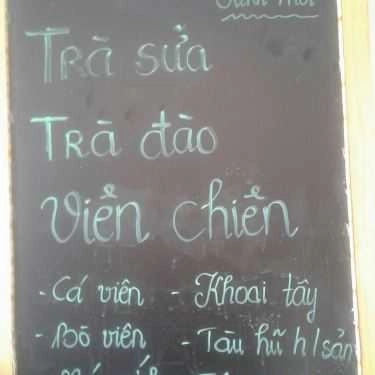 Trà sữa
Trà đào
Viên chiên
- Cá viên - Khoai tây
- Bò viên - Tàu hũ h/sản